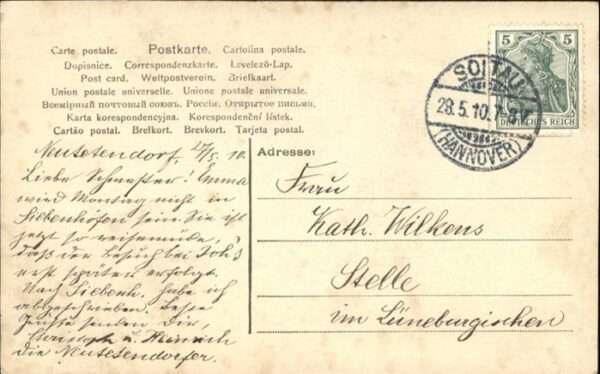 Carte postale. Postkarte. Cartolina postale.
Dopisnice. Correspondenzkarte. Levelező-Lap.
Post card. Weltpostverein. Briefkaart.
Union postale universelle. Unione postale universale.
Всемірный почтовый союзъ. Россіи. Открытое письмо.
Karta korespondencyjna. Korespondenční lístek.
Cartão postal. Brefkort. Brevkort. Tarjeta postal.
5 5
DEUTSCHES REICH
SOLTAU
28.5.10.
(HANNOVER)
Adresse:
Frau
Kath. Wilkens
Stelle
im Lüneburgischen
10.
Liebe Schwester! Emma
wird Montag nicht in
Siebenhöfen sein. Sie ist
jetzt so reisemüde,
daß der Besuch bei Joh's
erst später erfolgt.
Nach Siebenh. habe ich
abgeschrieben. Beste
Grüße senden Dir,
u. Heinrich
die